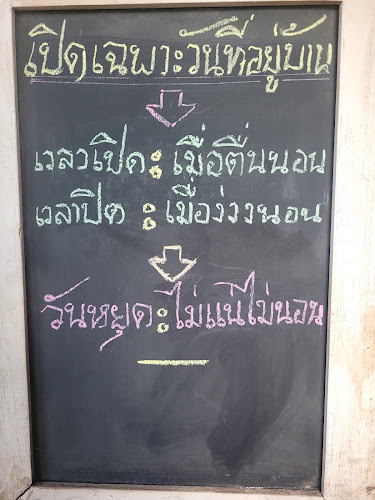 เปิดเฉพาะวันที่อยู่บ้าน
เวลาเปิด : เมื่อตื่นนอน
เวลาปิด : เมื่อง่วงนอน
วันหยุด : ไม่แน่ไม่นอน